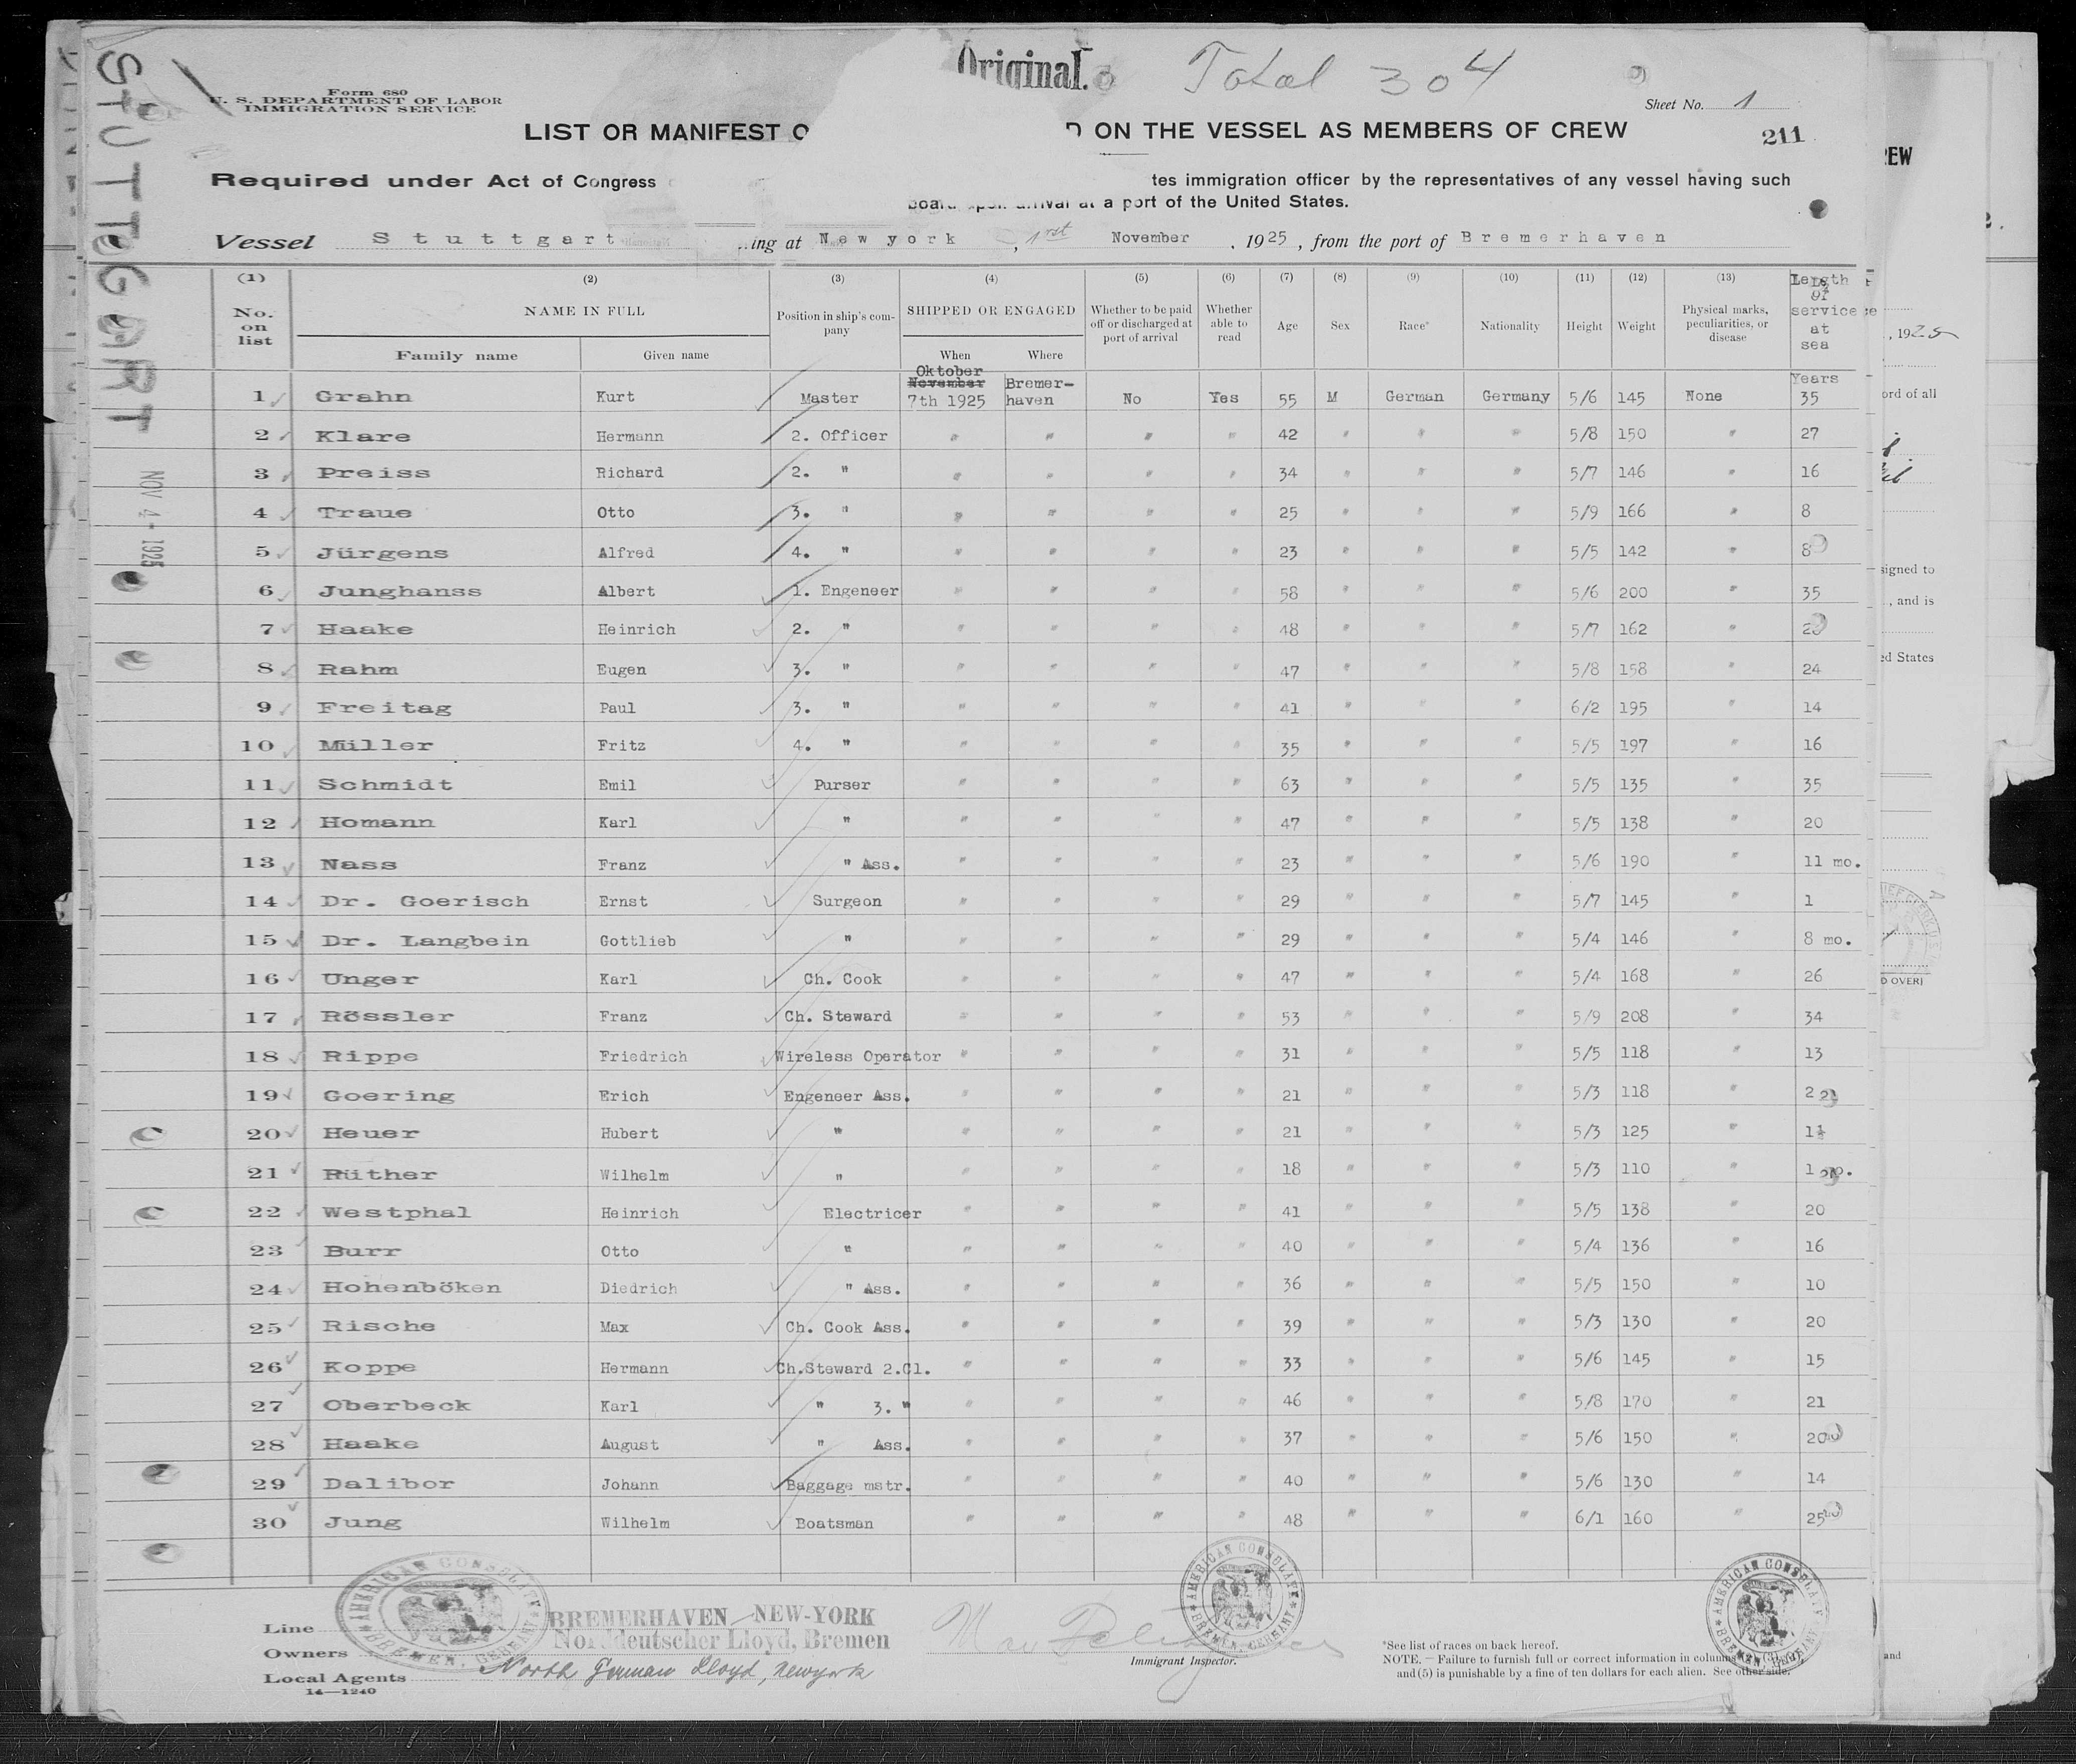 Original. Total 304
Form 680
U. S. DEPARTMENT OF LABOR
IMMIGRATION SERVICE
Sheet No. 1
LIST OR MANIFEST O D ON THE VESSEL AS MEMBERS OF CREW
211
Required under Act of Congress tes immigration officer by the representatives of any vessel having such
board upon arrival at a port of the United States.
Vessel Stuttgart ing at Newyork, 1rst November, 1925, from the port of Bremerhaven
STUTTGART
NOV 4 - 1925
(1) (2) (3) (4) (5) (6) (7) (8) (9) (10) (11) (12) (13)
No. on list
NAME IN FULL
Family name Given name
Position in ship's company
SHIPPED OR ENGAGED
When Where
Whether to be paid off or discharged at port of arrival
Whether able to read
Age Sex Race* Nationality Height Weight
Physical marks, peculiarities, or disease
Length of service at sea
1 Grahn Kurt Master Oktober November 7th 1925 Bremer-haven No Yes 55 M German Germany 5/6 145 None Years 35
2 Klare Hermann 2. Officer " " " " 42 " " " 5/8 150 " 27
3 Preiss Richard 2. " " " " " 34 " " " 5/7 146 " 16
4 Traue Otto 3. " " " " " 25 " " " 5/9 166 " 8
5 Jürgens Alfred 4. " " " " " 23 " " " 5/5 142 " 8
6 Junghanss Albert 1. Engeneer " " " " 58 " " " 5/6 200 " 35
7 Haake Heinrich 2. " " " " " 48 " " " 5/7 162 "
8 Rahm Eugen 3. " " " " " 47 " " " 5/8 158 " 24
9 Freitag Paul 3. " " " " " 41 " " " 6/2 195 " 14
10 Müller Fritz 4. " " " " " 35 " " " 5/5 197 " 16
11 Schmidt Emil Purser " " " " 63 " " " 5/5 135 " 35
12 Homann Karl " " " " " 47 " " " 5/5 138 " 20
13 Nass Franz " Ass. " " " " 23 " " " 5/6 190 " 11 mo.
14 Dr. Goerisch Ernst Surgeon " " " " 29 " " " 5/7 145 " 1
15 Dr. Langbein Gottlieb " " " " " 29 " " " 5/4 146 " 8 mo.
16 Unger Karl Ch. Cook " " " " 47 " " " 5/4 168 " 26
17 Rössler Franz Ch. Steward " " " " 53 " " " 5/9 208 " 34
18 Rippe Friedrich Wireless Operator " " " " 31 " " " 5/5 118 " 13
19 Goering Erich Engeneer Ass. " " " " 21 " " " 5/3 118 " 2
20 Heuer Hubert " " " " " 21 " " " 5/3 125 " 1½
21 Rüther Wilhelm " " " " " 18 " " " 5/3 110 " 1 mo.
22 Westphal Heinrich Electricer " " " " 41 " " " 5/5 138 " 20
23 Burr Otto " " " " " 40 " " " 5/4 136 " 16
24 Hohenböken Diedrich " Ass. " " " " 36 " " " 5/5 150 " 10
25 Rische Max Ch. Cook Ass. " " " " 39 " " " 5/3 130 " 20
26 Koppe Hermann Ch.Steward 2.Cl. " " " " 33 " " " 5/6 145 " 15
27 Oberbeck Karl " 3. " " " " " 46 " " " 5/8 170 " 21
28 Haake August " Ass. " " " " 37 " " " 5/6 150 " 20
29 Dalibor Johann Baggage mstr. " " " " 40 " " " 5/6 130 " 14
30 Jung Wilhelm Boatsman " " " " 48 " " " 6/1 160 " 25
AMERICAN CONSULATE BREMEN, GERMANY
AMERICAN CONSULATE BREMEN, GERMANY
AMERICAN CONSULATE BREMEN, GERMANY
Line BREMERHAVEN - NEW-YORK
Owners Norddeutscher Lloyd, Bremen
Local Agents North German Lloyd, Newyork
14—1240
Immigrant Inspector.
*See list of races on back hereof.
NOTE. — Failure to furnish full or correct information in columns (3)
and (5) is punishable by a fine of ten dollars for each alien. See other side.
EW
, 1925
ord of all
signed to
, and is
ed States
D OVER)
and